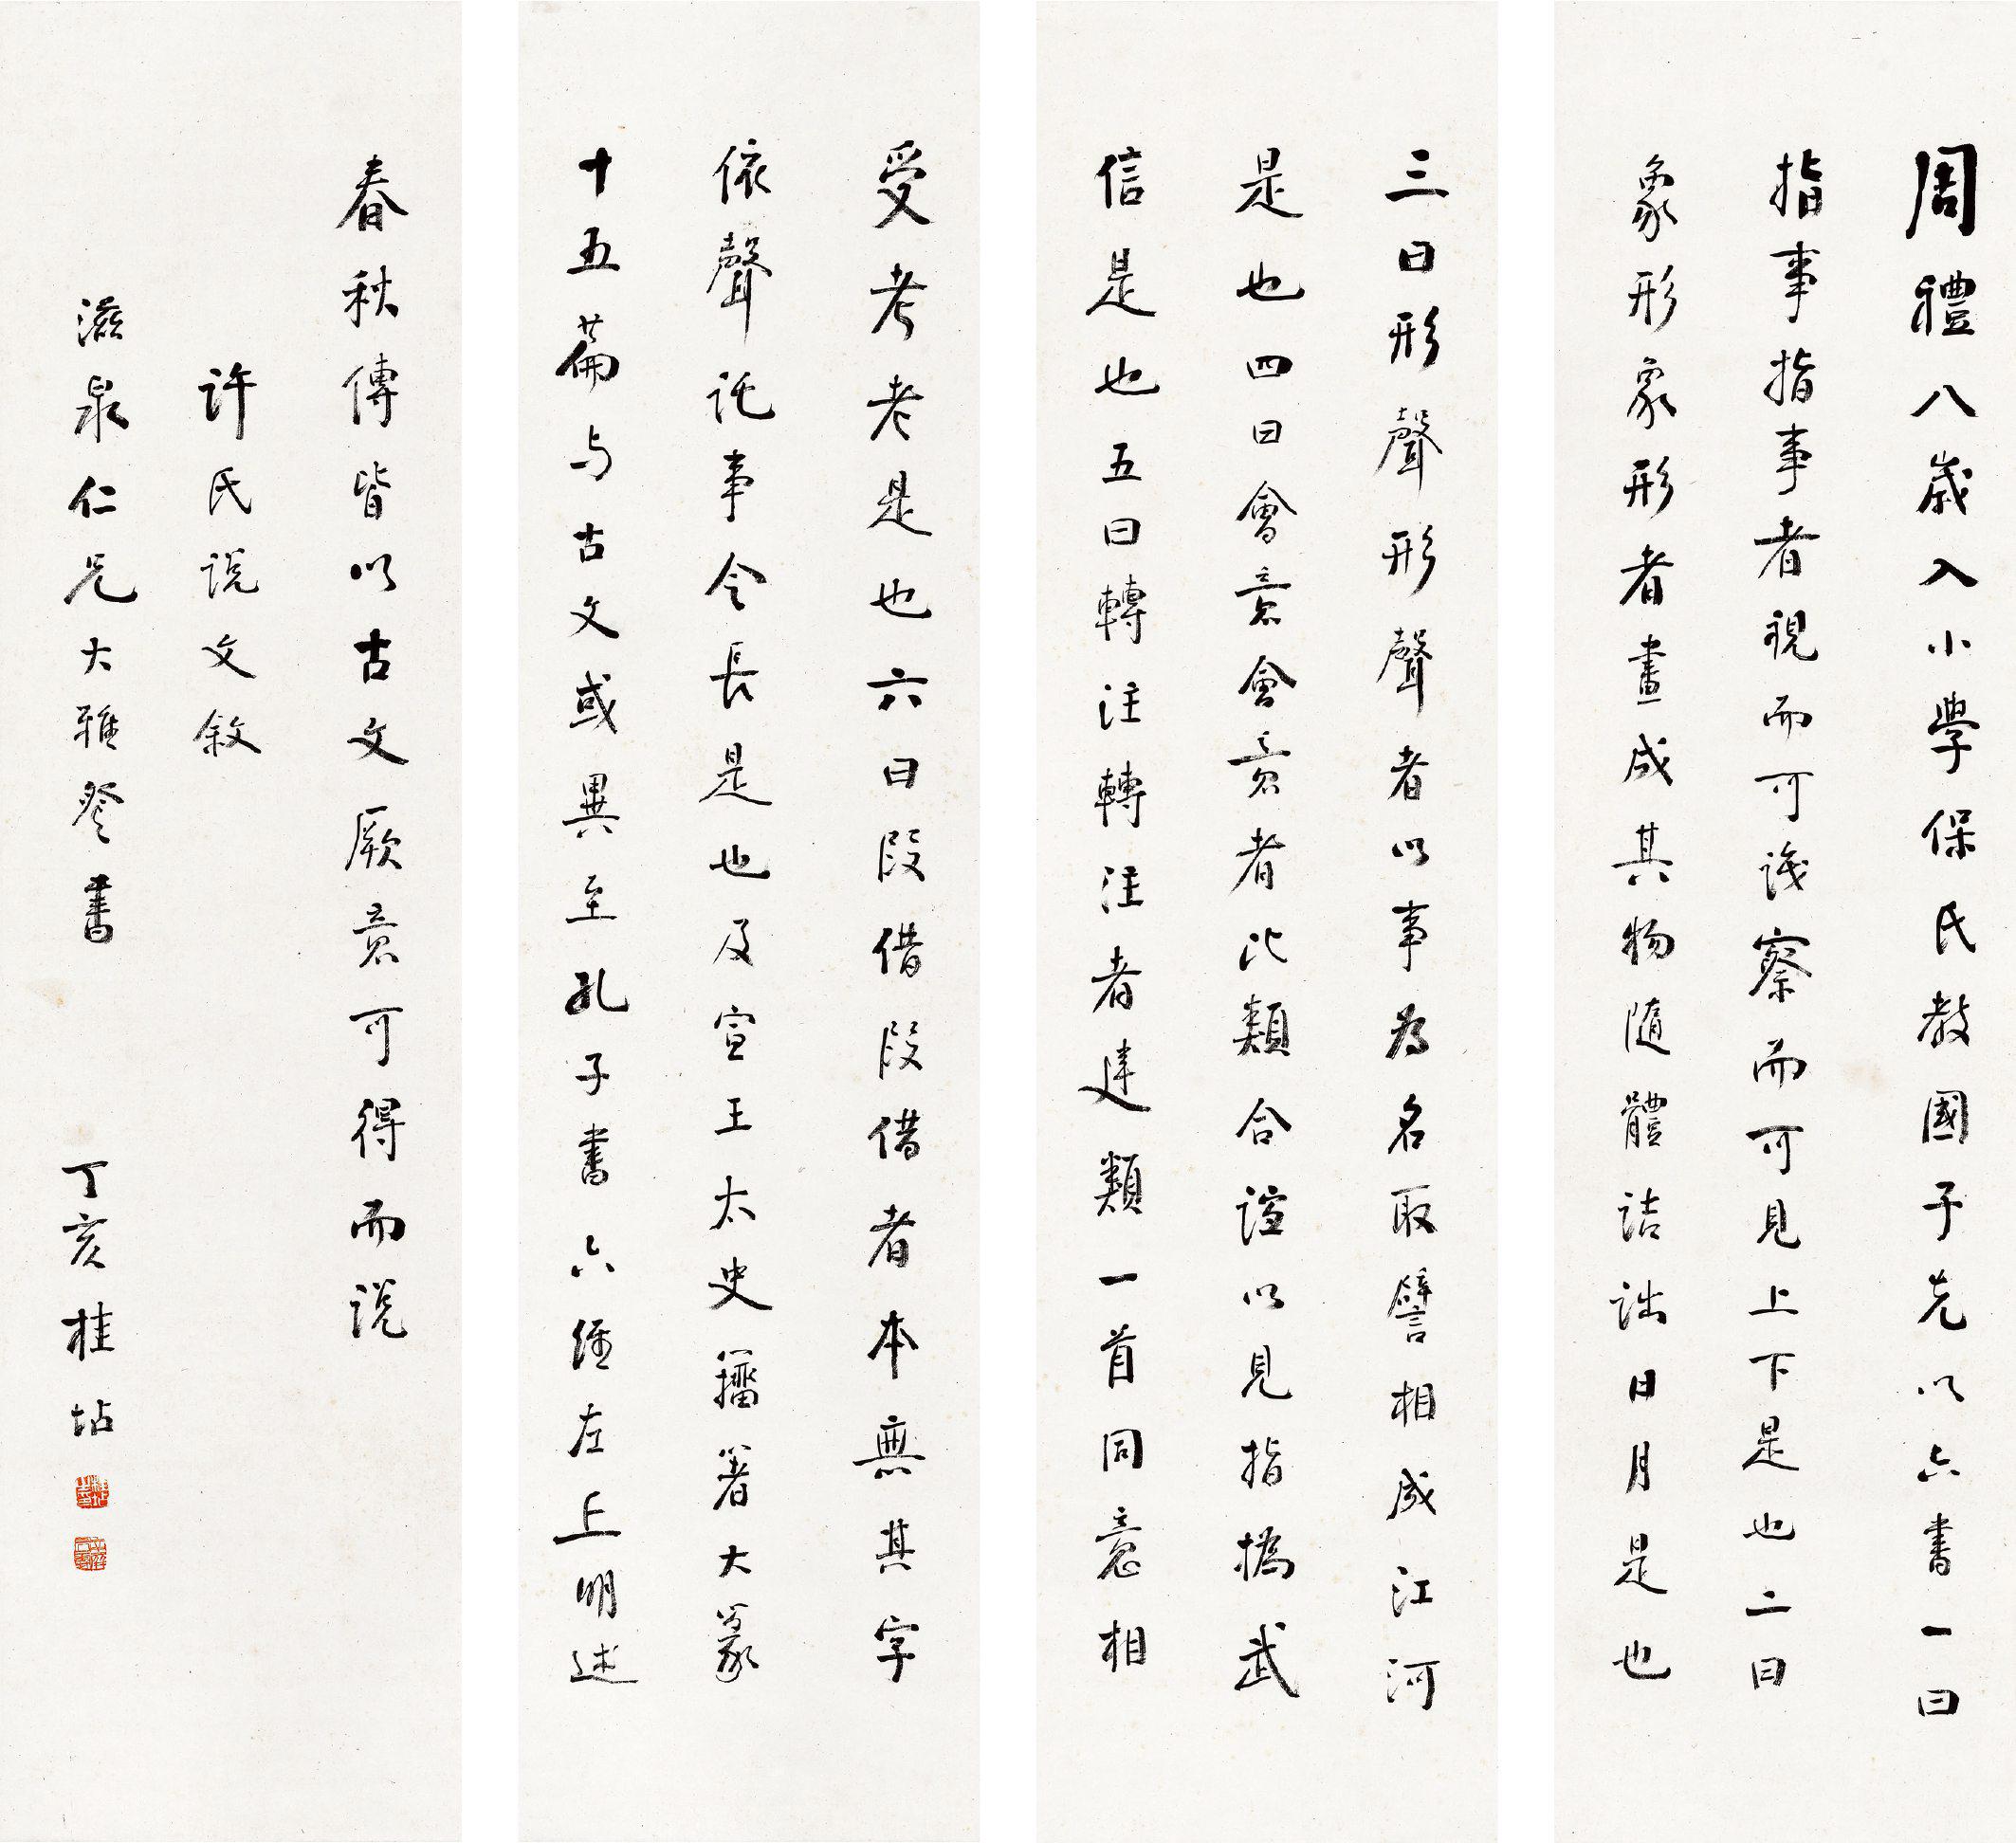 周禮八歲入小學保氏教國子先以六書一曰
指事指事者視而可識察而可見上下是也二曰
象形象形者畫成其物隨體詰詘日月是也
三曰形聲形聲者以事為名取譬相成江河
是也四曰會意會意者比類合誼以見指撝武
信是也五曰轉注轉注者建類一首同意相
受考老是也六曰叚借叚借者本無其字
依聲託事令長是也及宣王太史籀著大篆
十五篇与古文或異至孔子書六經左丘明述
春秋傳皆以古文厥意可得而說
許氏說文敘
滋泉仁兄大雅詧書
丁亥桂坫